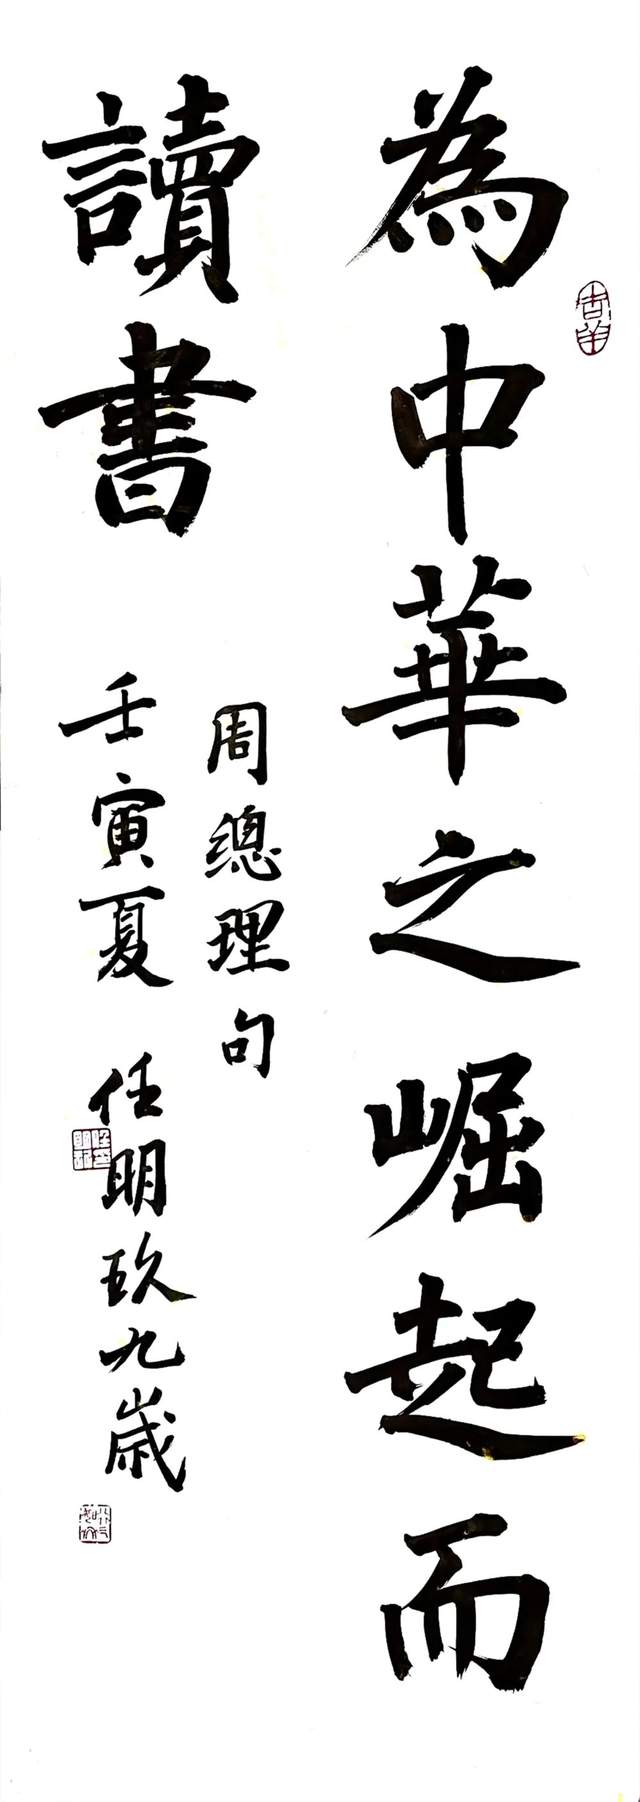 為中華之崛起而
讀書
周總理句
壬寅夏 任明玖九歲